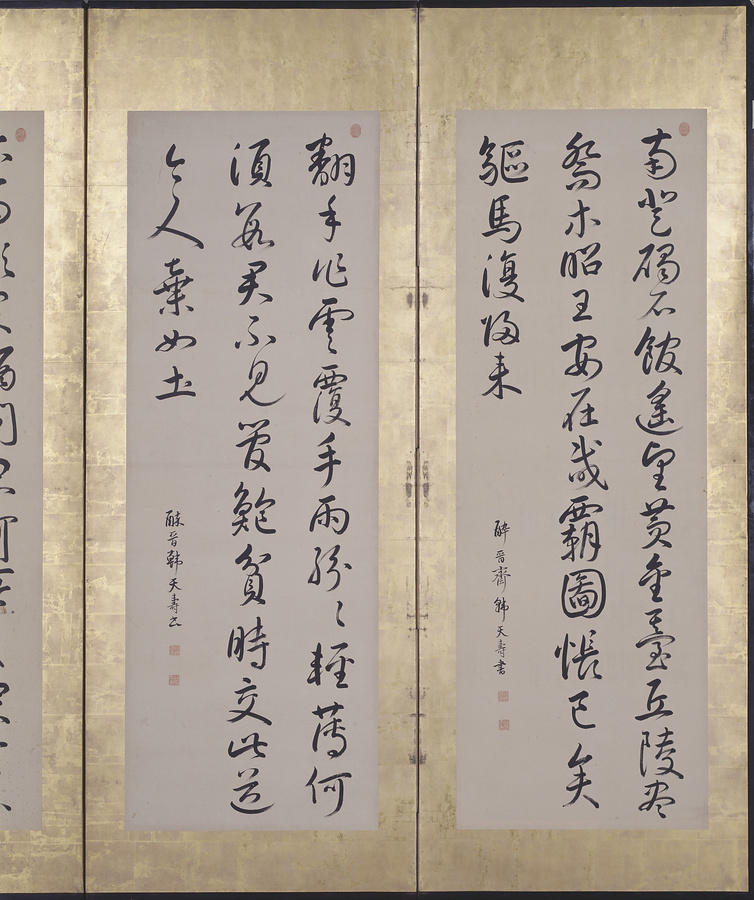 南登碣石館遙望黃金臺丘陵盡
喬木昭王安在哉霸圖悵已矣
驅馬復歸来
醉晉齋韓天壽書
翻手作雲覆手雨紛々輕薄何
須數君不見管鮑貧時交此道
今人棄如土
醉晉韓天壽書